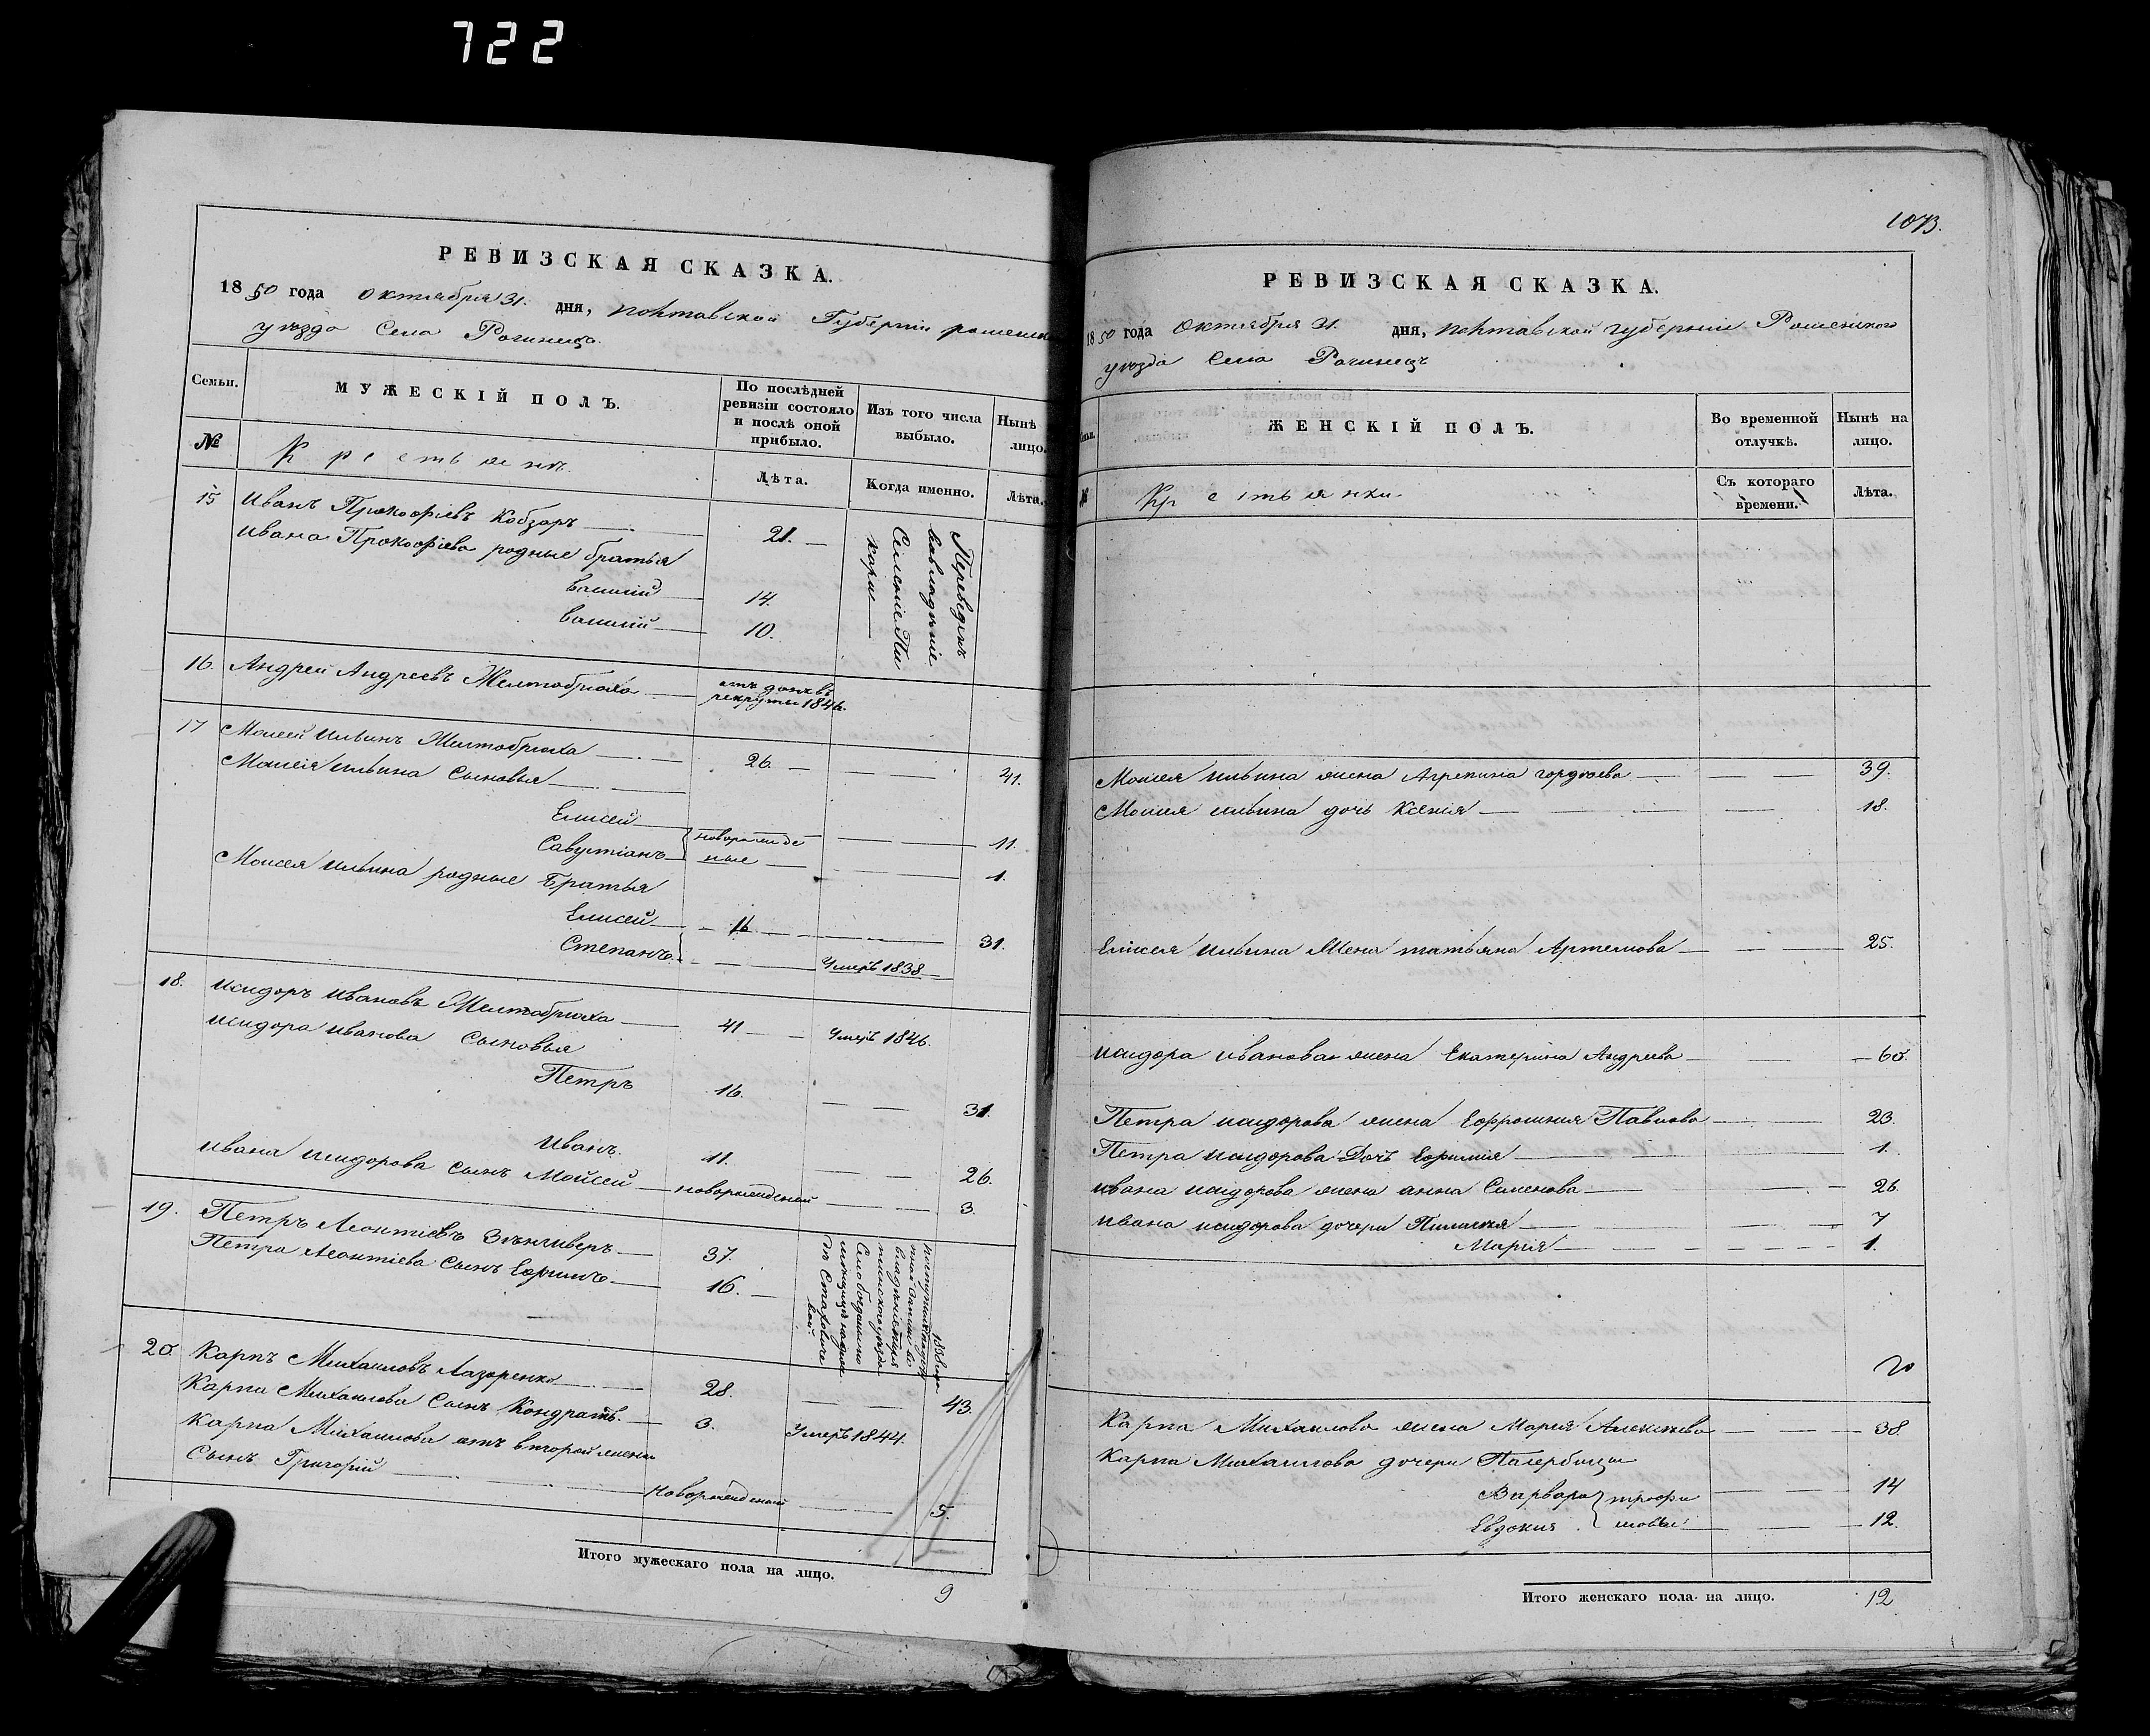 722
РЕВИЗСКАЯ СКАЗКА.
1850 года октября 31. дня, полтавской Губернии
уезда Села Рагинецъ.
Семьи.
МУЖЕСКІЙ ПОЛЪ.
По послѣдней ревизіи состояло и послѣ оной прибыло.
Изъ того числа выбыло.
Нынѣ лицо.
№
Крестьяне.
Лѣта.
Когда именно.
Лѣта.
15 Иванъ Прокофіевъ Кобзарь 21.
Ивана Прокофіева родные братья
Василій 14.
Василій 10.
Переведенъ
Селеніе Пи
16. Андрей Андреевъ Желтобрюхо
рекруты 1846.
17 Моисей Ильинъ Желтобрюха 26. 41.
Моисея Ильина Сыновья
Елисей 11.
Савустіанъ новорожде
ные 1.
Моисея Ильина родные братья
Елисей 16 31.
Степанъ Умеръ 1838
18. Исидоръ Ивановъ Желтобрюха 41 Умеръ 1846.
Исидора Иванова Сыновья
Петръ 16. 31.
Иванъ. 11. 26.
Ивана Исидорова Сынъ Мойсей новорожденый 3.
19. Петръ Леонтіевъ 37.
Петра Леонтіева Сынъ Ефимъ 16.
20 Карпъ Михаиловъ Лазоренко 28. 43.
Карпа Михаилова Сынъ Кондратъ. 3. Умеръ 1844.
Карпа Михаилова отъ второй жены
Сынъ Григорій новорожденый 5.
Итого мужескаго пола на лицо.
9
1073.
РЕВИЗСКАЯ СКАЗКА.
1850 года Октября 31. дня, полтавской губерніи
уезда Села Рагинецъ
ЖЕНСКІЙ ПОЛЪ.
Во временной отлучкѣ.
Нынѣ на лицо.
№
Крестьянки.
Съ котораго времени.
Лѣта.
Моисея Ильина жена Агрепина Гордѣева 39.
Моисея Ильина дочь Ксенія 18.
Елисея Ильина Жена татьяна Артемова 25.
Исидора Иванова жена Екатерина Андреева 60.
Петра Исидорова жена Ефросиния Павлова 23.
Петра Исидорова Дочъ Ефимия 1.
Ивана Исидорова жена анна Семенова 26.
Ивана Исидорова дочери 7
Мария 1.
20
Карпа Михаилова жена Мария Алексѣева 38.
Карпа Михаилова дочери Пасербицы
Варвара 14
Евдокия 12.
Итого женскаго пола на лицо.
12